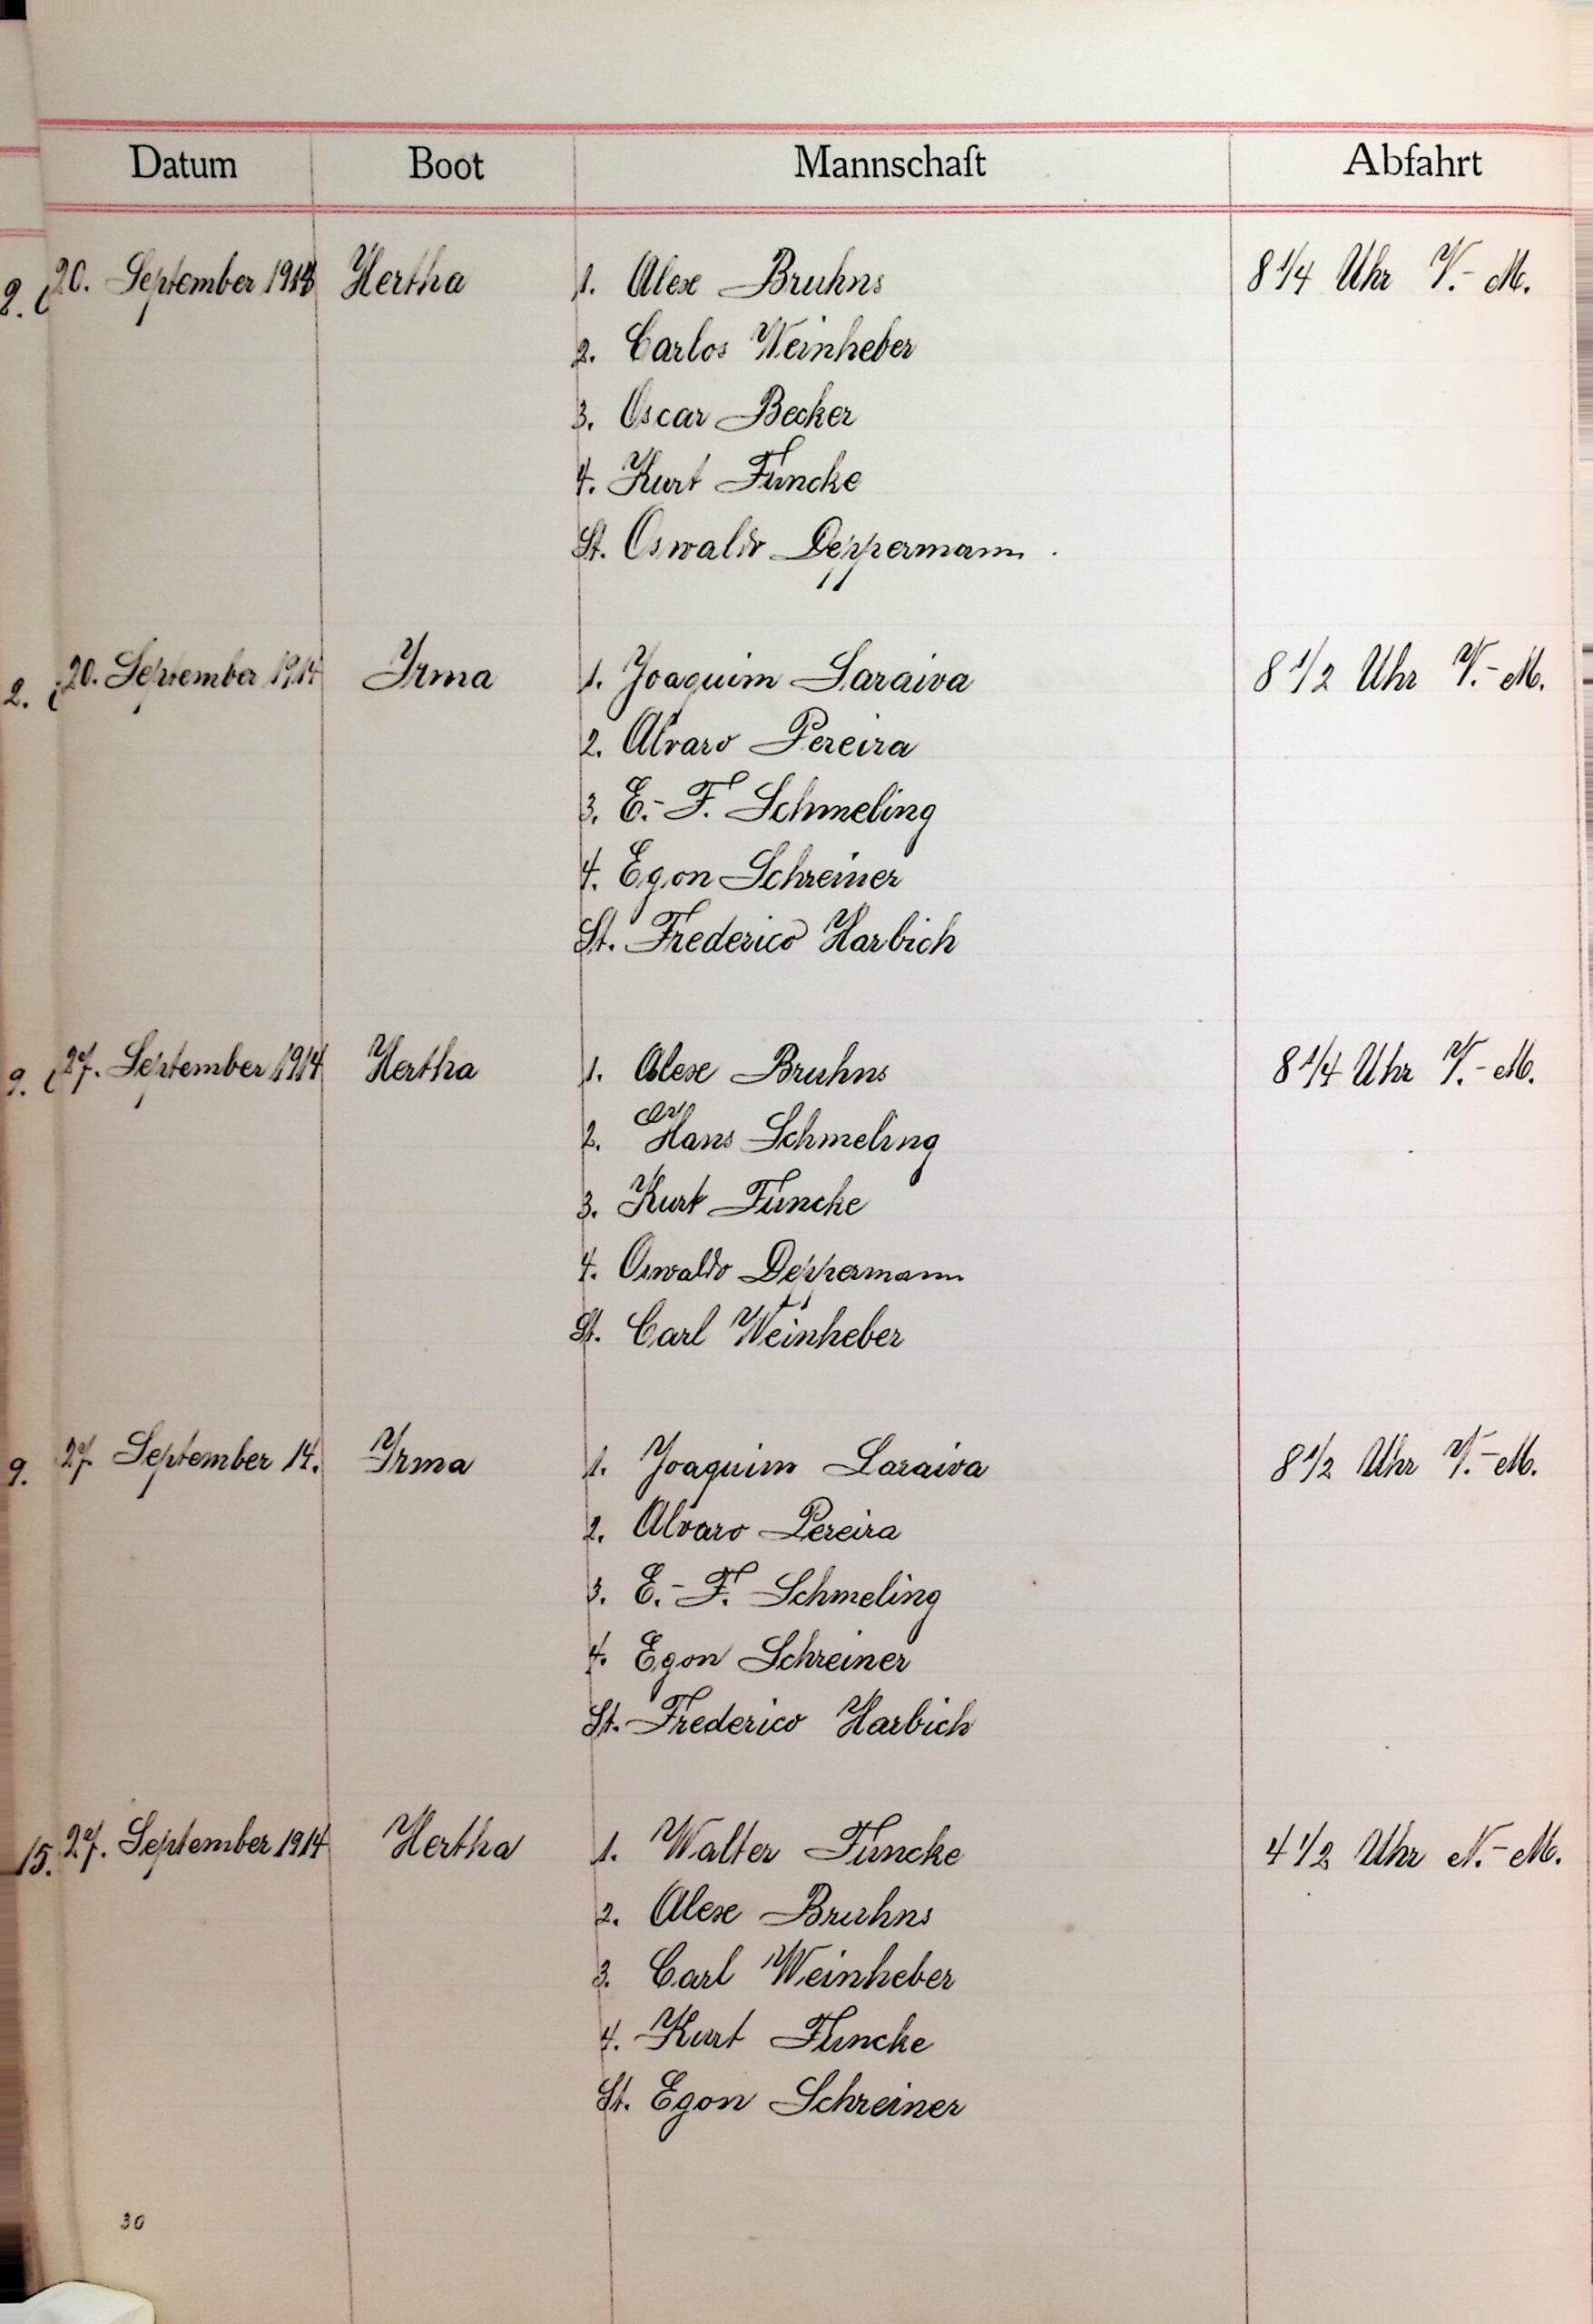 Datum Boot Mannschaft Abfahrt
20. September 1914 Hertha 1. Alex Bruhns 8 1/4 Uhr V.-M.
2. Carlos Weinheber
3. Oscar Becker
4. Kurt Funcke
St. Oswaldo Deppermann
2. 20. September 1914 Irma 1. Joaquim Saraiva 8 1/2 Uhr V.-M.
2. Alvaro Pereira
3. E.-F. Schmeling
4. Egon Schreiner
St. Frederico Harbich
9. 27. September 1914 Hertha 1. Alex Bruhns 8 1/4 Uhr V.-M.
2. Hans Schmeling
3. Kurt Funcke
4. Oswaldo Deppermann
St. Carl Weinheber
9. 27 September 14. Irma 1. Joaquim Saraiva 8 1/2 Uhr V.-M.
2. Alvaro Pereira
3. E.-F. Schmeling
4. Egon Schreiner
St. Frederico Harbich
15. 27. September 1914 Hertha 1. Walter Funcke 4 1/2 Uhr N.-M.
2. Alex Bruhns
3. Carl Weinheber
4. Kurt Funcke
St. Egon Schreiner
30